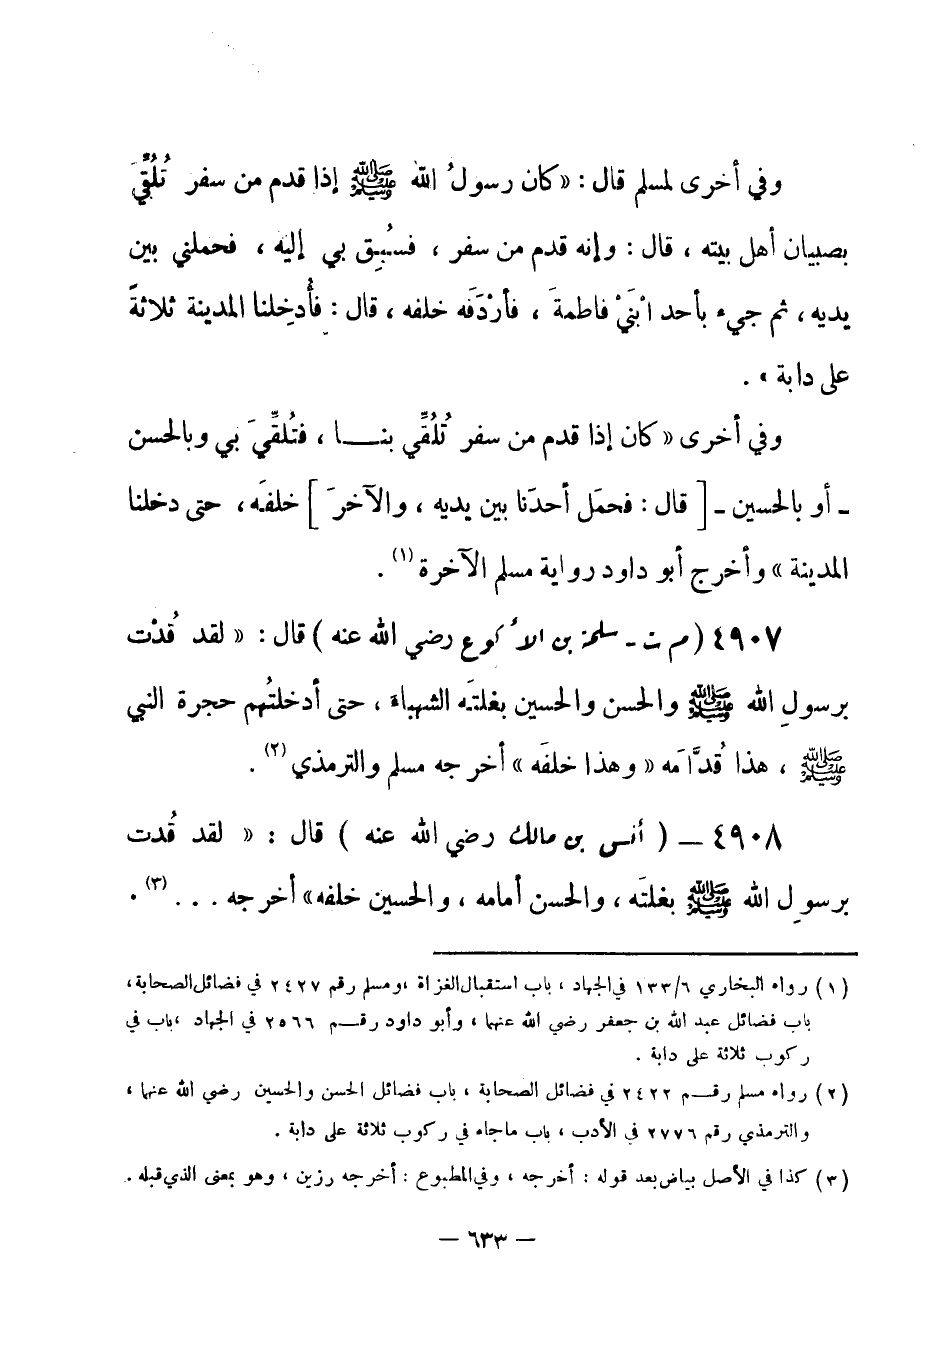 وفي أخرى لمسلم قال : « كان رسولُ الله ﷺ إذا قدم من سفر تُلُقِّيَ
بصبيان أهل بيته ، قال : وإنه قدم من سفر ، فسُبِق بي إليه ، فحملني بين
يديه ، ثم جيء بأحد ابْنَيْ فاطمةَ ، فأرْدَفه خلفه ، قال : فأُدخِلنا المدينة ثلاثةً
على دابة » .
وفي أخرى « كان إذا قدم من سفر تُلُقِّي بنا ، فتُلقِّيَ بي وبالحسن
ـ أو بالحسين ـ [ قال : فحمَل أحدَنا بين يديه ، والآخرَ ] خلفَه ، حتى دخلنا
المدينة » وأخرج أبو داود رواية مسلم الآخرة (١) .
٤٩٠٧ ( م ت ـ سلمة بن الأكوع رضي الله عنه ) قال : « لقد قُدْت
برسولِ الله ﷺ والحسن والحسين بغلتَه الشهباءَ ، حتى أدخلتُهم حجرة النبي
ﷺ ، هذا قُدَّامَه « وهذا خلفَه » أخرجه مسلم والترمذي (٢) .
٤٩٠٨ ـ ( أنس بن مالك رضي الله عنه ) قال : « لقد قُدت
برسولِ الله ﷺ بغلتَه ، والحسن أمامه ، والحسين خلفه » أخرجه . . . (٣) .
(١) رواه البخاري ١٣٣/٦ في الجهاد ، باب استقبال الغزاة ، ومسلم رقم ٢٤٢٧ في فضائل الصحابة ،
باب فضائل عبد الله بن جعفر رضي الله عنهما ، وأبو داود رقم ٢٥٦٦ في الجهاد ، باب في
ركوب ثلاثة على دابة .
(٢) رواه مسلم رقم ٢٤٢٢ في فضائل الصحابة ، باب فضائل الحسن والحسين رضي الله عنهما ،
والترمذي رقم ٢٧٧٦ في الأدب ، باب ماجاء في ركوب ثلاثة على دابة .
(٣) كذا في الأصل بياض بعد قوله : أخرجه ، وفي المطبوع : أخرجه رزين ، وهو بمعنى الذي قبله .
— ٦٣٣ —